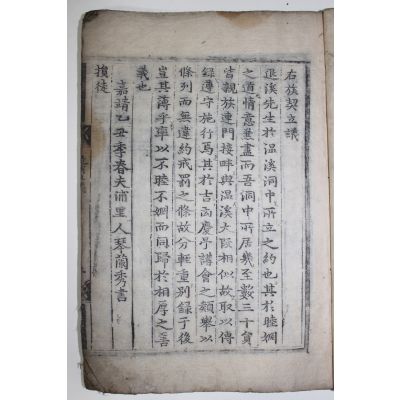 右族契立議
退溪先生於温溪洞中所立之約也其於睦婣
之道情意兼盡而吾洞中所居幾至數三十員
皆親族連門接畔與温溪大段相似故取以傳
録遵守施行焉其於吉凶慶吊講會之類舉以
條列而無違約戒罰之條故分輕重別録于後
豈其薄乎率以不睦不婣而同歸於相厚之善
義也
嘉靖乙丑季春夫浦里人琴蘭秀書
損徒